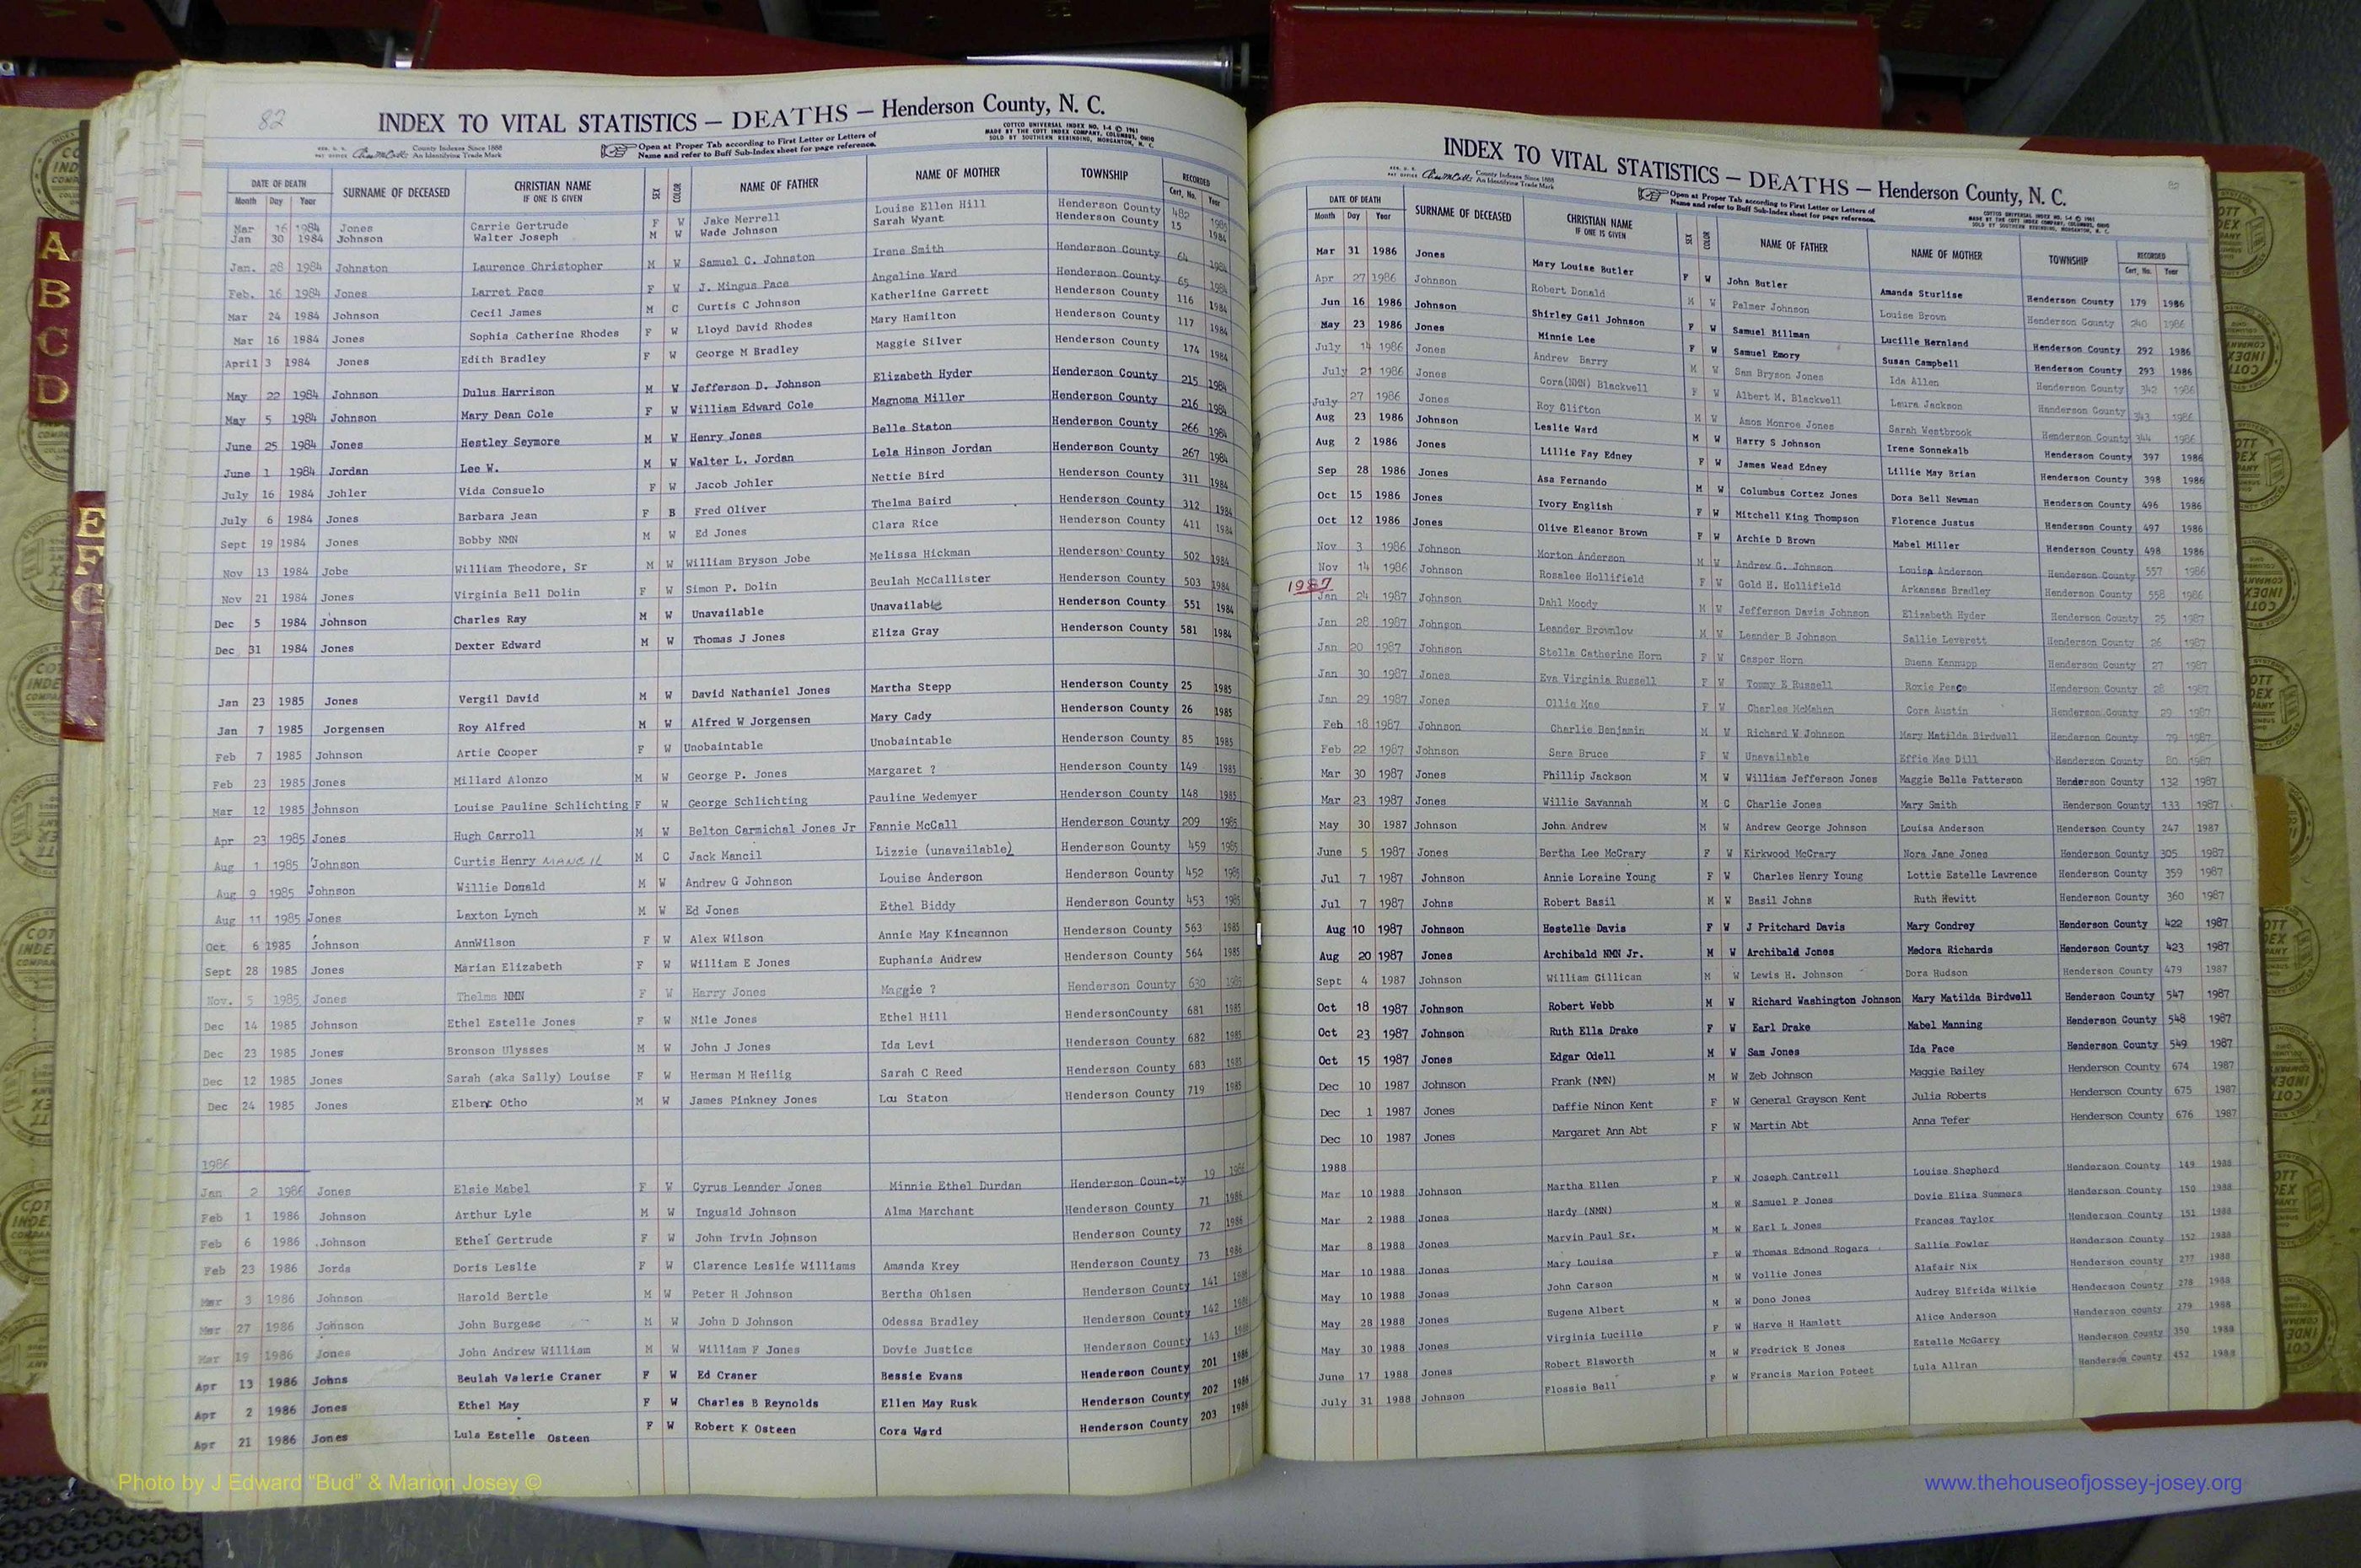 82
INDEX TO VITAL STATISTICS — DEATHS — Henderson County, N. C.
County Indexes Since 1888
An Identifying Trade Mark
Open at Proper Tab according to First Letter or Letters of
Name and refer to Buff Sub-Index sheet for page reference.
COTTCO UNIVERSAL INDEX NO. 1-4 © 1961
MADE BY THE COTT INDEX COMPANY, COLUMBUS, OHIO
SOLD BY SOUTHERN REBINDING, MORGANTON, N. C.
DATE OF DEATH SURNAME OF DECEASED CHRISTIAN NAME SEX COLOR NAME OF FATHER NAME OF MOTHER TOWNSHIP RECORDED
Month Day Year IF ONE IS GIVEN Cert. No. Year
Mar 16 1984 Jones Carrie Gertrude F W Jake Merrell Louise Ellen Hill Henderson County 482
Jan 30 1984 Johnson Walter Joseph M W Wade Johnson Sarah Wyant Henderson County 15 1984
Jan. 28 1984 Johnston Laurence Christopher M W Samuel C. Johnston Irene Smith Henderson County 64 1984
Feb. 16 1984 Jones Larret Pace F W J. Mingus Pace Angeline Ward Henderson County 65 1984
Mar 24 1984 Johnson Cecil James M C Curtis C Johnson Katherline Garrett Henderson County 116 1984
Mar 16 1984 Jones Sophia Catherine Rhodes F W Lloyd David Rhodes Mary Hamilton Henderson County 117 1984
April 3 1984 Jones Edith Bradley F W George M Bradley Maggie Silver Henderson County 174 1984
May 22 1984 Johnson Dulus Harrison M W Jefferson D. Johnson Elizabeth Hyder Henderson County 215 1984
May 5 1984 Johnson Mary Dean Cole F W William Edward Cole Magnoma Miller Henderson County 216 1984
June 25 1984 Jones Hestley Seymore M W Henry Jones Belle Staton Henderson County 266 1984
June 1 1984 Jordan Lee W. M W Walter L. Jordan Lela Hinson Jordan Henderson County 267 1984
July 16 1984 Johler Vida Consuelo F W Jacob Johler Nettie Bird Henderson County 311 1984
July 6 1984 Jones Barbara Jean F B Fred Oliver Thelma Baird Henderson County 312 1984
Sept 19 1984 Jones Bobby NMN M W Ed Jones Clara Rice Henderson County 411 1984
Nov 13 1984 Jobe William Theodore, Sr M W William Bryson Jobe Melissa Hickman Henderson County 502 1984
Nov 21 1984 Jones Virginia Bell Dolin F W Simon P. Dolin Beulah McCallister Henderson County 503 1984
Dec 5 1984 Johnson Charles Ray M W Unavailable Unavailable Henderson County 551 1984
Dec 31 1984 Jones Dexter Edward M W Thomas J Jones Eliza Gray Henderson County 581 1984
Jan 23 1985 Jones Vergil David M W David Nathaniel Jones Martha Stepp Henderson County 25 1985
Jan 7 1985 Jorgensen Roy Alfred M W Alfred W Jorgensen Mary Cady Henderson County 26 1985
Feb 7 1985 Johnson Artie Cooper F W Unobaintable Unobaintable Henderson County 85 1985
Feb 23 1985 Jones Millard Alonzo M W George P. Jones Margaret ? Henderson County 149 1985
Mar 12 1985 Johnson Louise Pauline Schlichting F W George Schlichting Pauline Wedemyer Henderson County 148 1985
Apr 23 1985 Jones Hugh Carroll M W Belton Carmichal Jones Jr Fannie McCall Henderson County 209 1985
Aug 1 1985 Johnson Curtis Henry MANCIL M C Jack Mancil Lizzie (unavailable) Henderson County 459 1985
Aug 9 1985 Johnson Willie Donald M W Andrew G Johnson Louise Anderson Henderson County 452 1985
Aug 11 1985 Jones Laxton Lynch M W Ed Jones Ethel Biddy Henderson County 453 1985
Oct 6 1985 Johnson AnnWilson F W Alex Wilson Annie May Kincannon Henderson County 563 1985
Sept 28 1985 Jones Marian Elizabeth F W William E Jones Euphania Andrew Henderson County 564 1985
Nov. 5 1985 Jones Thelma NMN F W Harry Jones Maggie ? Henderson County 630 1985
Dec 14 1985 Johnson Ethel Estelle Jones F W Nile Jones Ethel Hill HendersonCounty 681 1985
Dec 23 1985 Jones Bronson Ulysses M W John J Jones Ida Levi Henderson County 682 1985
Dec 12 1985 Jones Sarah (aka Sally) Louise F W Herman M Heilig Sarah C Reed Henderson County 683 1985
Dec 24 1985 Jones Elbert Otho M W James Pinkney Jones Lou Staton Henderson County 719 1985
1986
Jan 2 1986 Jones Elsie Mabel F W Cyrus Leander Jones Minnie Ethel Durdan Henderson Coun-ty 19 1986
Feb 1 1986 Johnson Arthur Lyle M W Inguald Johnson Alma Marchant Henderson County 71 1986
Feb 6 1986 Johnson Ethel Gertrude F W John Irvin Johnson Henderson County 72 1986
Feb 23 1986 Jorda Doris Leslie F W Clarence Leslie Williams Amanda Krey Henderson County 73 1986
Mar 3 1986 Johnson Harold Bertle M W Peter H Johnson Bertha Ohlsen Henderson County 141 1986
Mar 27 1986 Johnson John Burgess M W John D Johnson Odessa Bradley Henderson County 142 1986
Mar 19 1986 Jones John Andrew William M W William F Jones Dovie Justice Henderson County 143 1986
Apr 13 1986 Johns Beulah Valerie Craner F W Ed Craner Bessie Evans Henderson County 201 1986
Apr 2 1986 Jones Ethel May F W Charles B Reynolds Ellen May Rusk Henderson County 202 1986
Apr 21 1986 Jones Lula Estelle Osteen F W Robert K Osteen Cora Ward Henderson County 203 1986
Photo by J Edward "Bud" & Marion Josey ©
A
B
C
D
E
F
G
INDEX TO VITAL STATISTICS — DEATHS — Henderson County, N. C.
82
County Indexes Since 1888
An Identifying Trade Mark
Open at Proper Tab according to First Letter or Letters of
Name and refer to Buff Sub-Index sheet for page reference.
COTTCO UNIVERSAL INDEX NO. 1-4 © 1961
MADE BY THE COTT INDEX COMPANY, COLUMBUS, OHIO
SOLD BY SOUTHERN REBINDING, MORGANTON, N. C.
DATE OF DEATH SURNAME OF DECEASED CHRISTIAN NAME SEX COLOR NAME OF FATHER NAME OF MOTHER TOWNSHIP RECORDED
Month Day Year IF ONE IS GIVEN Cert. No. Year
Mar 31 1986 Jones Mary Louise Butler F W John Butler Amanda Sturlise Henderson County 179 1986
Apr 27 1986 Johnson Robert Donald M W Palmer Johnson Louise Brown Henderson County 240 1986
Jun 16 1986 Johnson Shirley Gail Johnson F W Samuel Billman Lucille Hernland Henderson County 292 1986
May 23 1986 Jones Minnie Lee F W Samuel Emory Susan Campbell Henderson County 293 1986
July 14 1986 Jones Andrew Barry M W Sam Bryson Jones Ida Allen Henderson County 342 1986
July 21 1986 Jones Cora(NMN) Blackwell F W Albert M. Blackwell Laura Jackson Henderson County 343 1986
July 27 1986 Jones Roy Clifton M W Amos Monroe Jones Sarah Westbrook Henderson County 344 1986
Aug 23 1986 Johnson Leslie Ward M W Harry S Johnson Irene Sonnekalb Henderson County 397 1986
Aug 2 1986 Jones Lillie Fay Edney F W James Wead Edney Lillie May Brian Henderson County 398 1986
Sep 28 1986 Jones Asa Fernando M W Columbus Cortez Jones Dora Bell Newman Henderson County 496 1986
Oct 15 1986 Jones Ivory English F W Mitchell King Thompson Florence Justus Henderson County 497 1986
Oct 12 1986 Jones Olive Eleanor Brown F W Archie D Brown Mabel Miller Henderson County 498 1986
Nov 3 1986 Johnson Morton Anderson M W Andrew G. Johnson Louisa Anderson Henderson County 557 1986
Nov 14 1986 Johnson Rosalee Hollifield F W Gold H. Hollifield Arkansas Bradley Henderson County 558 1986
1987
Jan 24 1987 Johnson Dahl Moody M W Jefferson Davis Johnson Elizabeth Hyder Henderson County 25 1987
Jan 28 1987 Johnson Leander Brownlow M W Leander B Johnson Sallie Leverett Henderson County 26 1987
Jan 20 1987 Johnson Stella Catherine Horn F W Casper Horn Buena Kannupp Henderson County 27 1987
Jan 30 1987 Jones Eva Virginia Russell F W Tommy E Russell Roxie Peace Henderson County 28 1987
Jan 29 1987 Jones Ollie Mae F W Charles McMahan Cora Austin Henderson County 29 1987
Feb 18 1987 Johnson Charlie Benjamin M W Richard W Johnson Mary Matilda Birdwell Henderson County 79 1987
Feb 22 1987 Johnson Sara Bruce F W Unavailable Effie Mae Dill Henderson County 80 1987
Mar 30 1987 Jones Phillip Jackson M W William Jefferson Jones Maggie Belle Patterson Henderson County 132 1987
Mar 23 1987 Jones Willie Savannah M C Charlie Jones Mary Smith Henderson County 133 1987
May 30 1987 Johnson John Andrew M W Andrew George Johnson Louisa Anderson Henderson County 247 1987
June 5 1987 Jones Bertha Lee McCrary F W Kirkwood McCrary Nora Jane Jones Henderson County 305 1987
Jul 7 1987 Johnson Annie Loraine Young F W Charles Henry Young Lottie Estelle Lawrence Henderson County 359 1987
Jul 7 1987 Johns Robert Basil M W Basil Johns Ruth Hewitt Henderson County 360 1987
Aug 10 1987 Johnson Hestelle Davis F W J Pritchard Davis Mary Condrey Henderson County 422 1987
Aug 20 1987 Jones Archibald NMN Jr. M W Archibald Jones Medora Richards Henderson County 423 1987
Sept 4 1987 Johnson William Gillican M W Lewis H. Johnson Dora Hudson Henderson County 479 1987
Oct 18 1987 Johnson Robert Webb M W Richard Washington Johnson Mary Matilda Birdwell Henderson County 547 1987
Oct 23 1987 Johnson Ruth Ella Drake F W Earl Drake Mabel Manning Henderson County 548 1987
Oct 15 1987 Jones Edgar Odell M W Sam Jones Ida Pace Henderson County 549 1987
Dec 10 1987 Johnson Frank (NMN) M W Zeb Johnson Maggie Bailey Henderson County 674 1987
Dec 1 1987 Jones Daffie Ninon Kent F W General Grayson Kent Julia Roberts Henderson County 675 1987
Dec 10 1987 Jones Margaret Ann Abt F W Martin Abt Anna Tefer Henderson County 676 1987
1988
Mar 10 1988 Johnson Martha Ellen F W Joseph Cantrell Louise Shepherd Henderson County 149 1988
Mar 2 1988 Jones Hardy (NMN) M W Samuel P Jones Dovie Eliza Summers Henderson County 150 1988
Mar 8 1988 Jones Marvin Paul Sr. M W Earl L Jones Frances Taylor Henderson County 151 1988
Mar 10 1988 Jones Mary Louise F W Thomas Edmond Rogers Sallie Fowler Henderson County 152 1988
May 10 1988 Jones John Carson M W Vollie Jones Alafair Nix Henderson county 277 1988
May 28 1988 Jones Eugene Albert M W Dono Jones Audrey Elfrida Wilkie Henderson County 278 1988
May 30 1988 Jones Virginia Lucille F W Harve H Hamlett Alice Anderson Henderson county 279 1988
June 17 1988 Jones Robert Elsworth M W Fredrick E Jones Estelle McGarry Henderson County 350 1988
July 31 1988 Johnson Flossie Bell F W Francis Marion Poteet Lula Allran Henderson County 452 1988
www.thehouseofjossey-josey.org